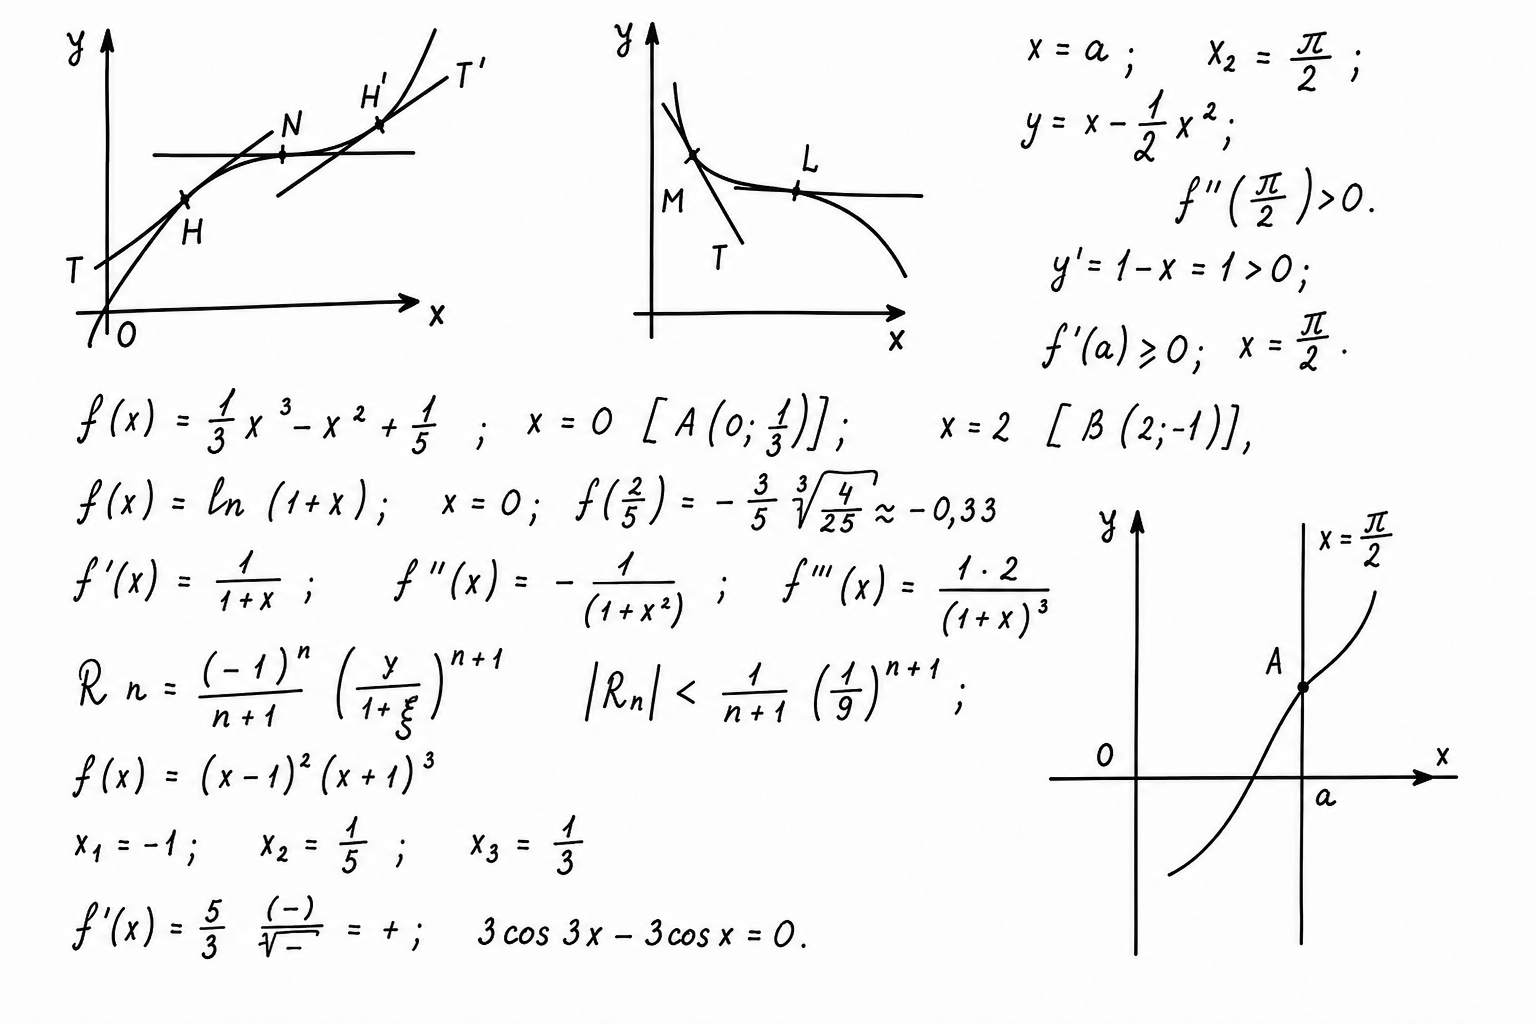 y
T'
H'
N
H
T
O
x
y
L
M
T
x
x = a ; x₂ = π/2 ;
y = x - 1/2 x² ;
f''(π/2) > 0.
y' = 1 - x = 1 > 0 ;
f'(a) ⩾ 0 ; x = π/2 .
f(x) = 1/3 x³ - x² + 1/5 ; x = 0 [A(0; 1/3)] ; x = 2 [B(2; -1)],
f(x) = ln (1+x) ; x = 0 ; f(2/5) = - 3/5 ∛(4/25) ≈ -0,33
f'(x) = 1/(1+x) ; f''(x) = - 1/(1+x²) ; f'''(x) = (1·2)/(1+x)³
R n = (-1)ⁿ/(n+1) (y/(1+ξ))ⁿ⁺¹ |Rₙ| < 1/(n+1) (1/9)ⁿ⁺¹ ;
f(x) = (x-1)² (x+1)³
x₁ = -1 ; x₂ = 1/5 ; x₃ = 1/3
f'(x) = 5/3 (-)/∛- = + ; 3 cos 3x - 3 cos x = 0.
y
x = π/2
A
O
x
a